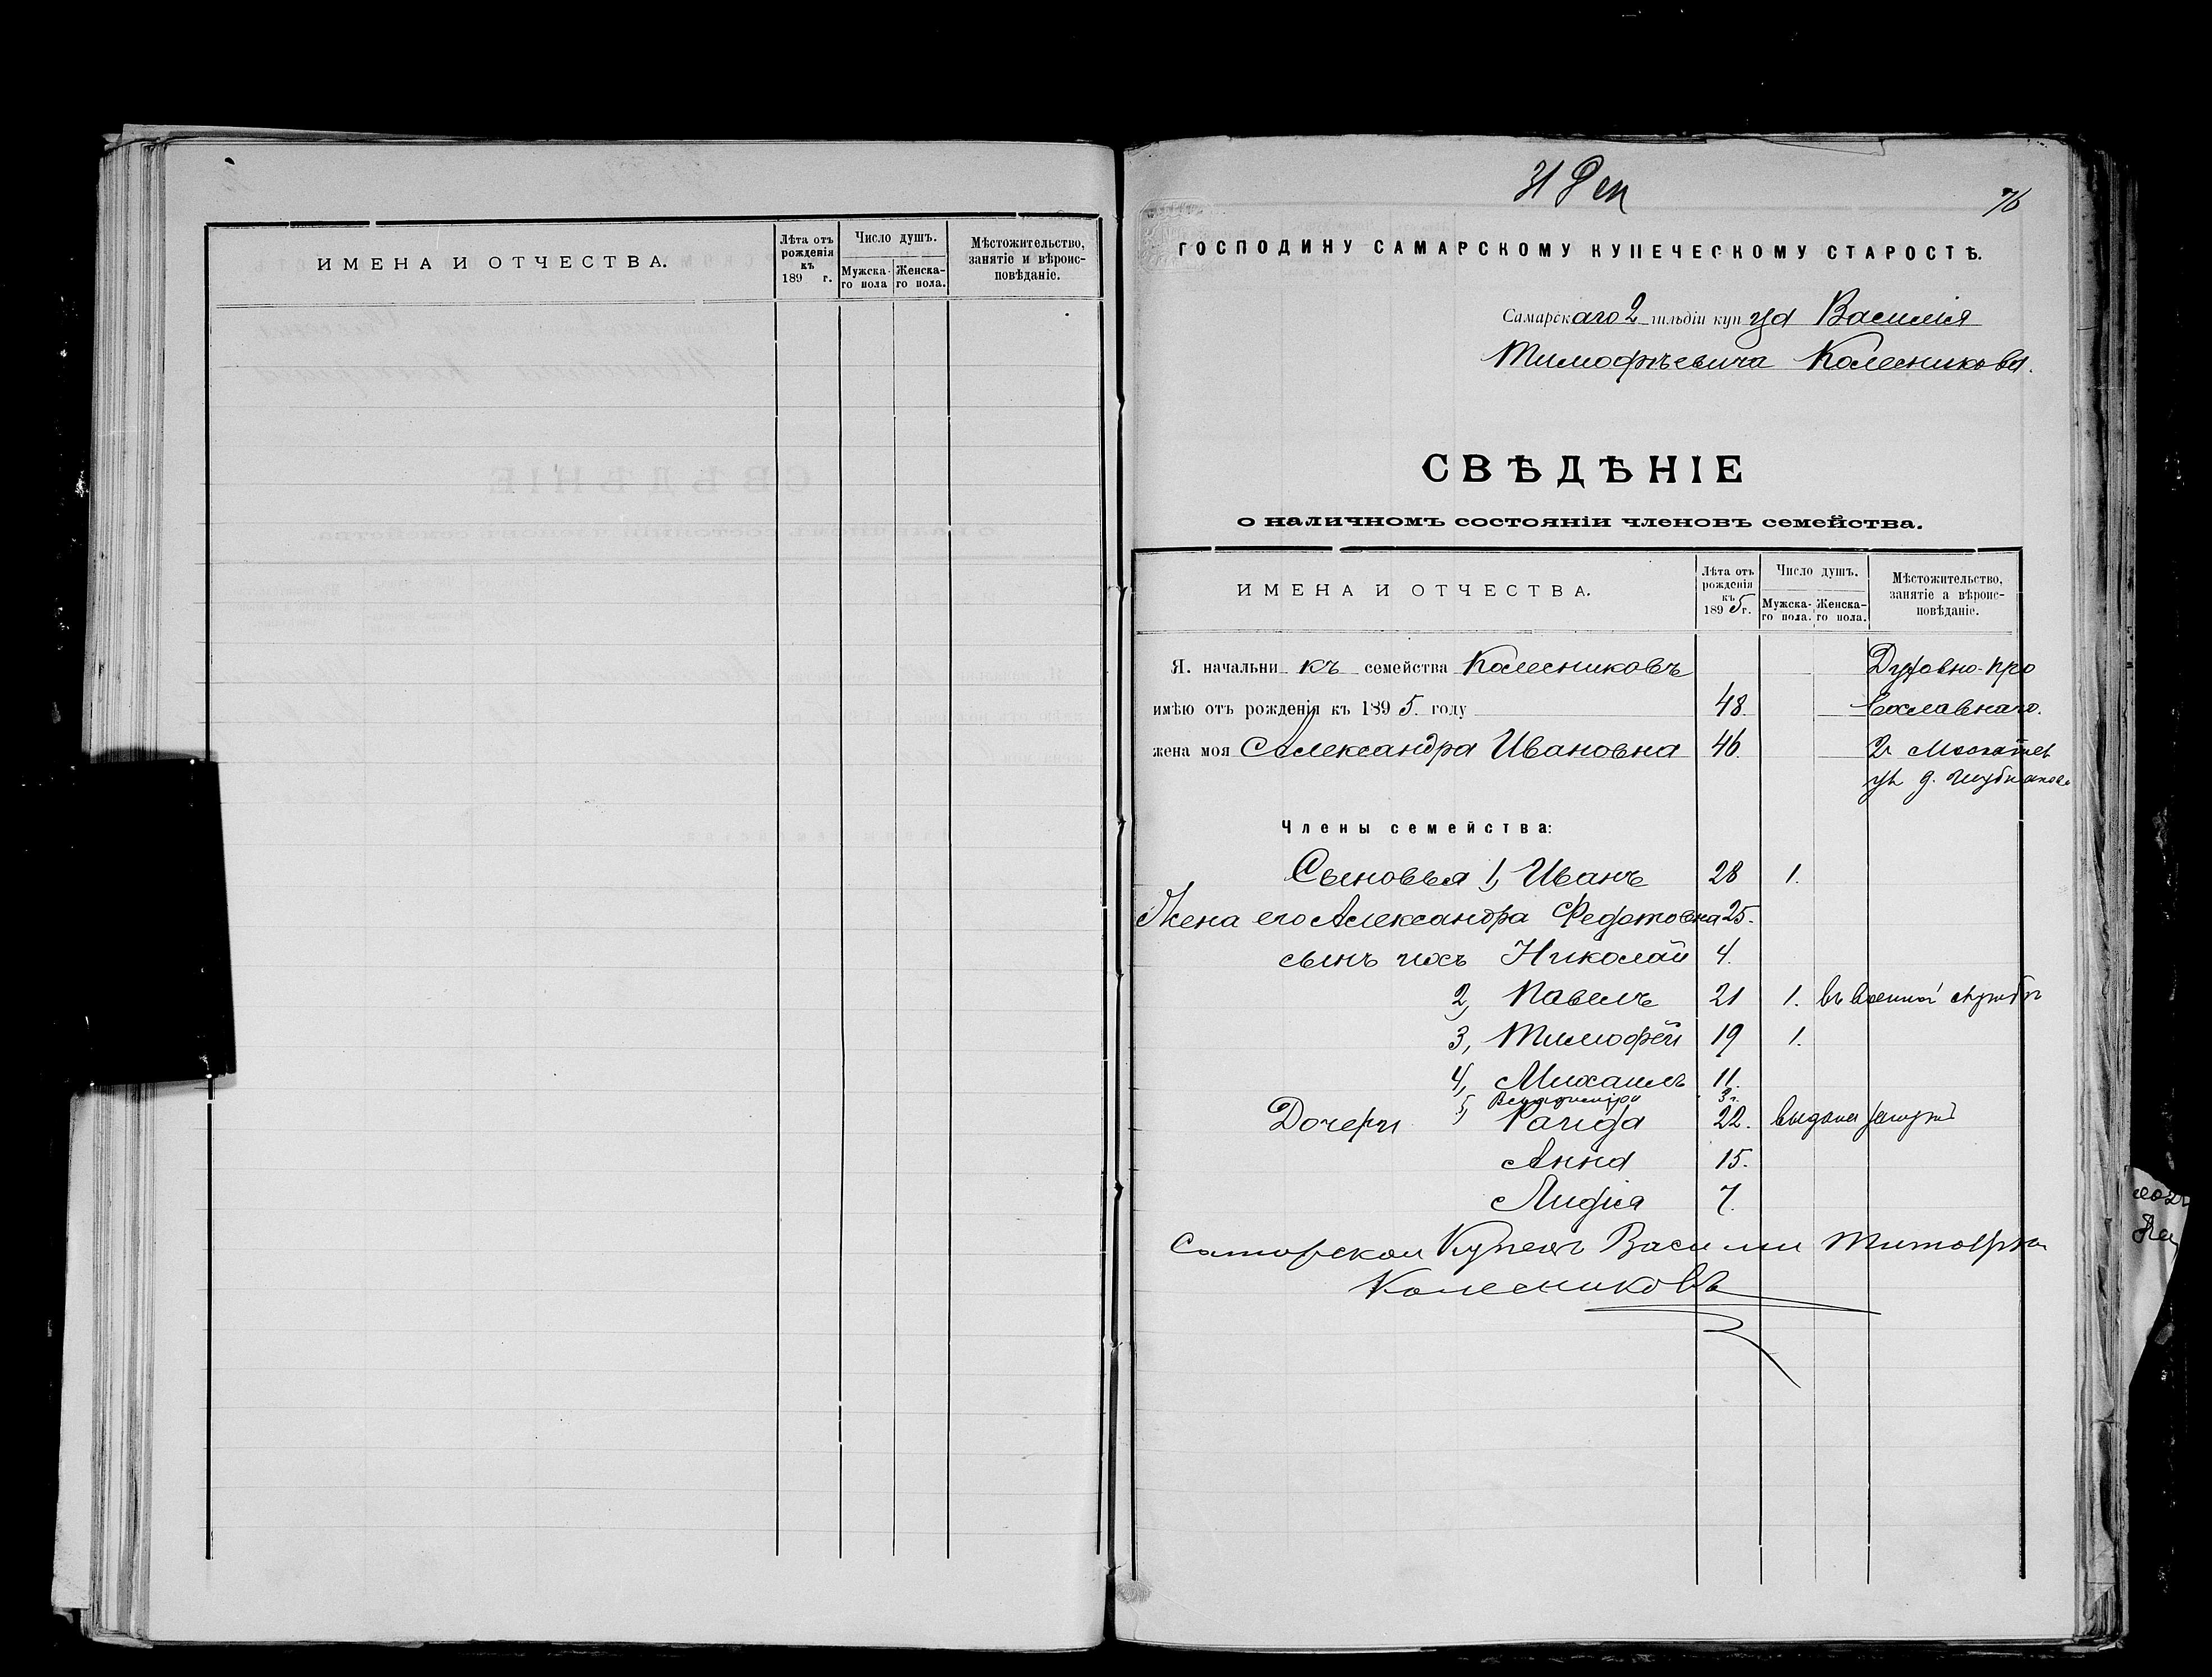 ИМЕНА И ОТЧЕСТВА.
Лѣта отъ рожденія къ 189 г.
Число душъ.
Мужска-го пола
Женска-го пола.
Мѣстожительство, занятіе и вѣроис-повѣданіе.
31 Дек
76
ГОСПОДИНУ САМАРСКОМУ КУПЕЧЕСКОМУ СТАРОСТѢ.
Самарскаго 2 гильдіи купца Василія
Тимофѣевича Колесникова.
СВѢДѢНІЕ
о наличномъ состояніи членовъ семейства.
ИМЕНА И ОТЧЕСТВА.
Лѣта отъ рожденія къ 1895 г.
Число душъ.
Мужска-го пола.
Женска-го пола.
Мѣстожительство, занятіе а вѣроис-повѣданіе.
Я. начальникъ семейства Колесниковъ Духовно-про
имѣю отъ рожденія къ 1895. году 48.
жена моя Александра Ивановна 46. 2
д.
Члены семейства:
Сыновья 1, Иванъ 28 1.
Жена его Александра Федотовна 25.
сынъ ихъ Николай 4.
2, Павелъ 21 1. въ военной службѣ
3, Тимофей 19 1.
4, Михаилъ 11.
5, 3 г.
Дочери Раида 22. выдана замужъ
Анна 15.
Лидія 7.
Саморской Купецъ Васили Тимофѣ
Колесниковъ